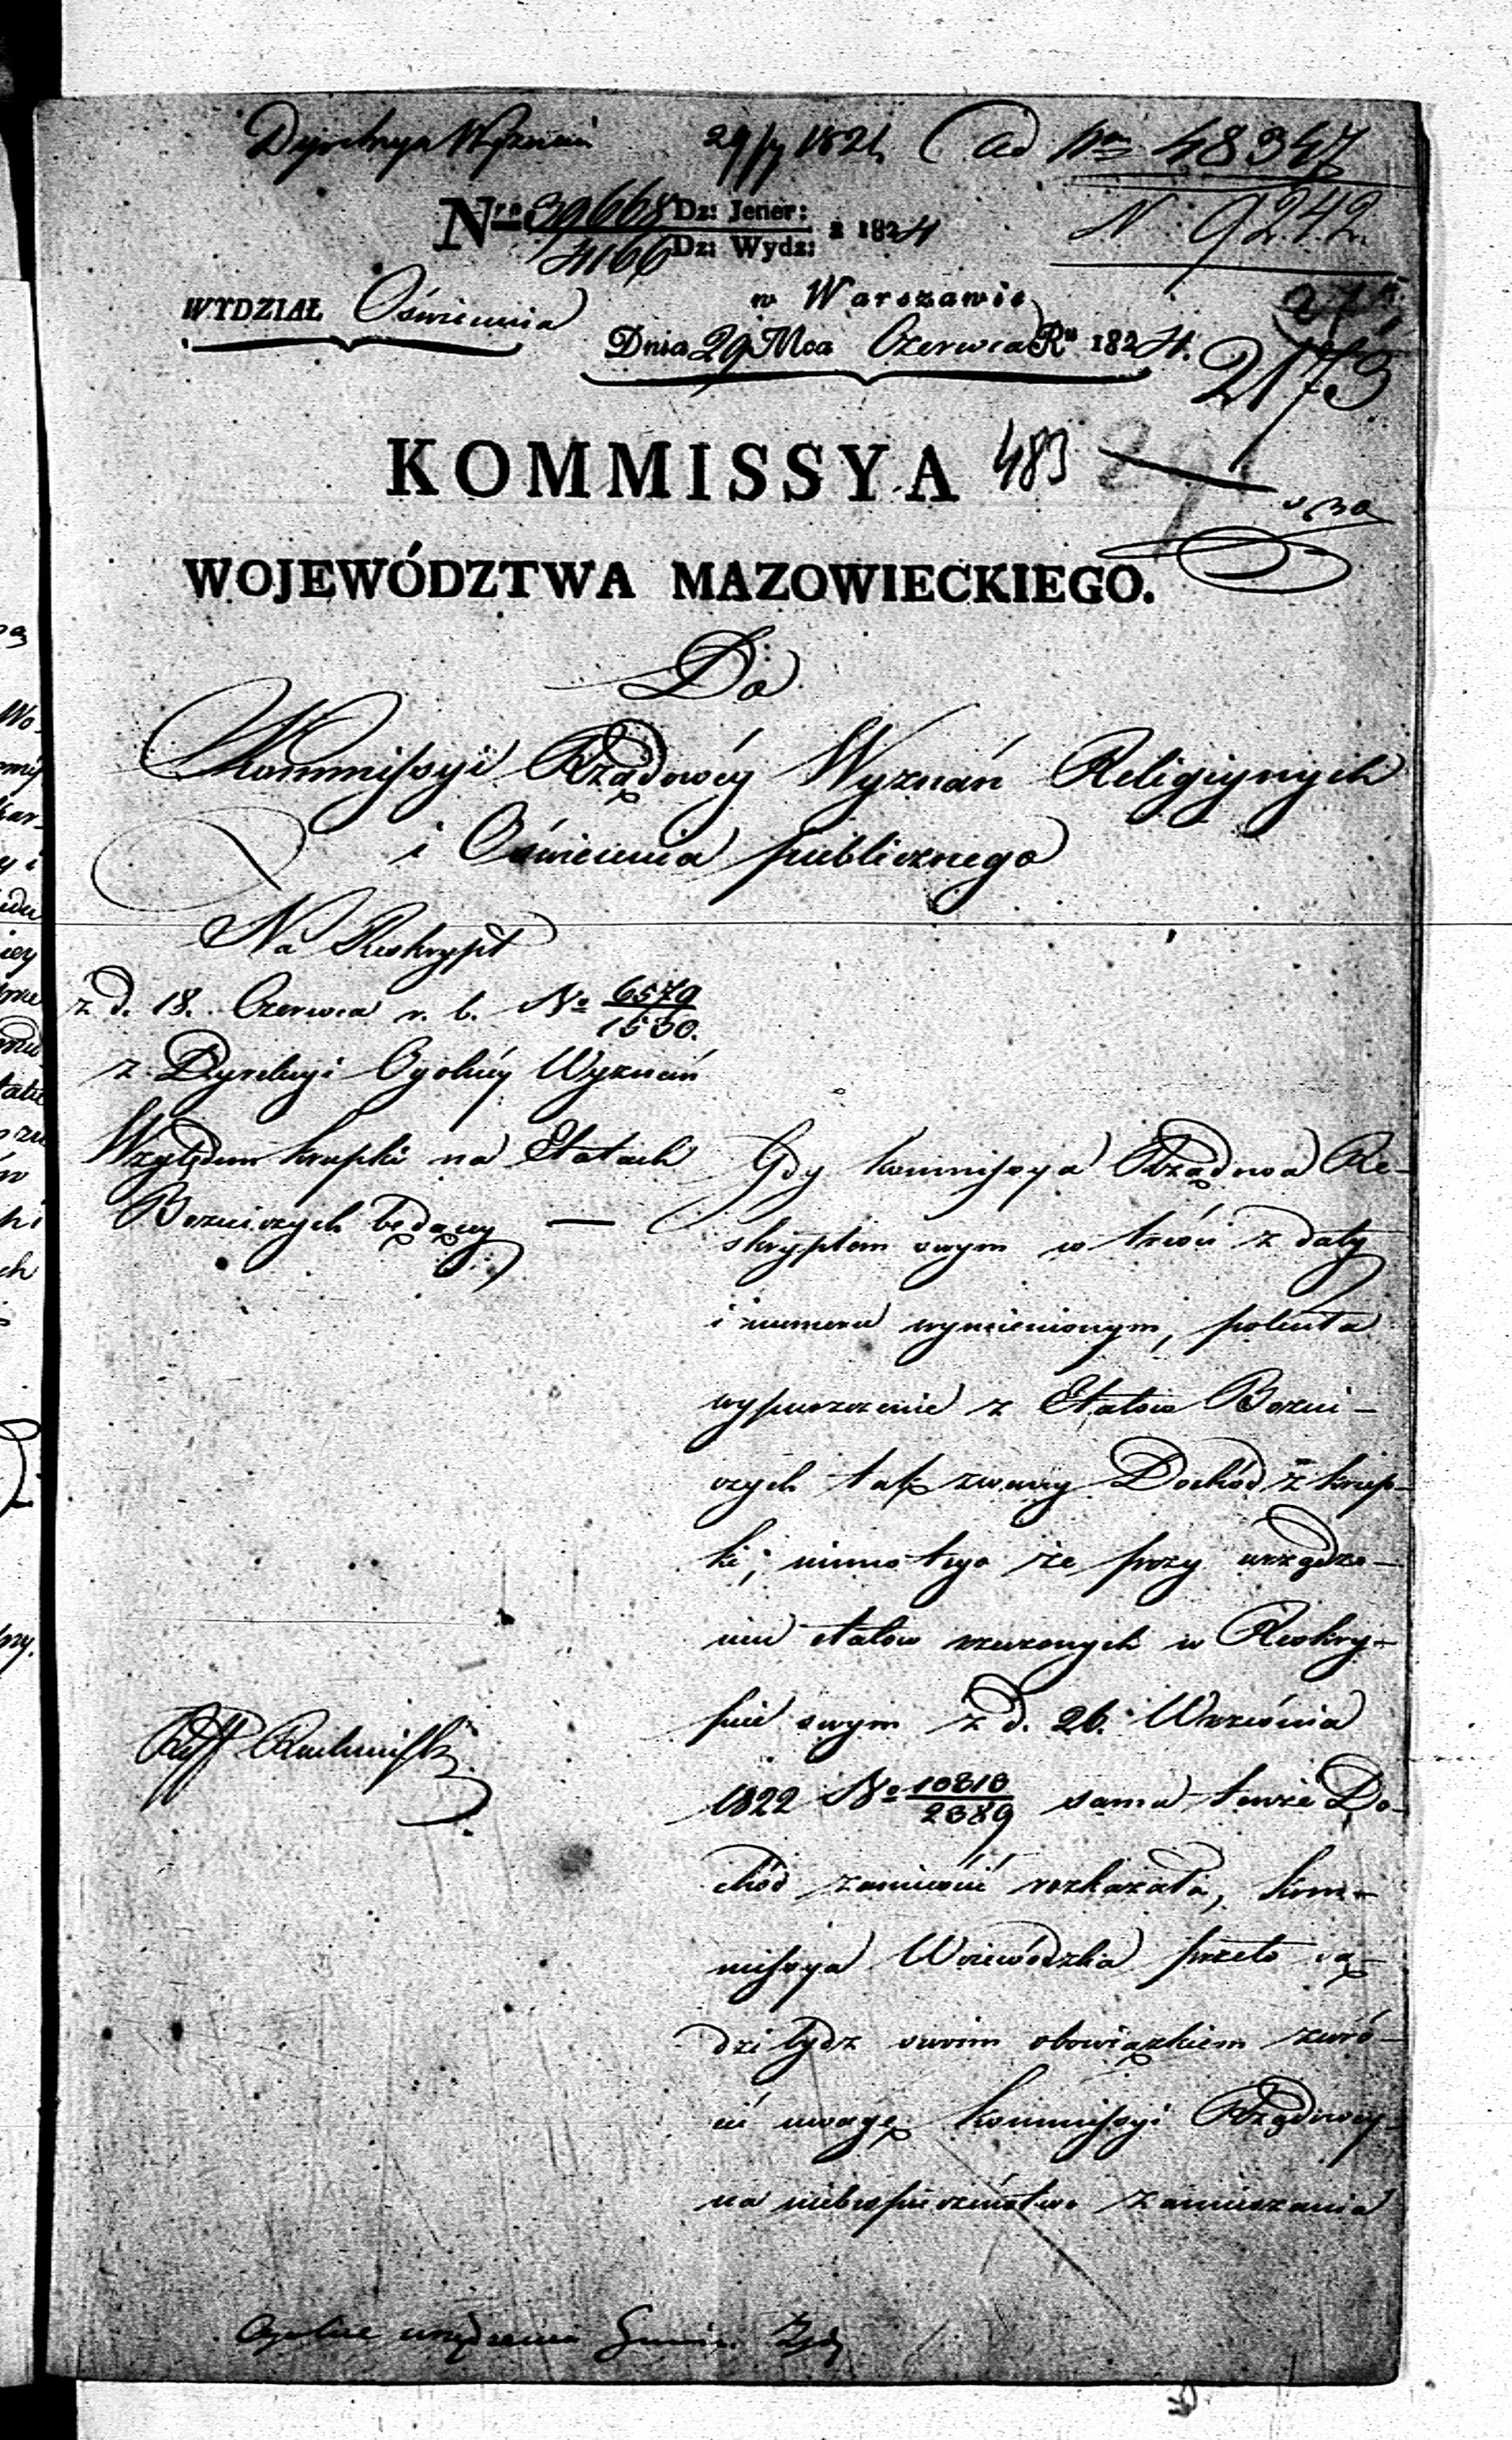 Dyrekcya Wyznań 29/7 1824 ad Nrm 48347
Nro 39668 Dz: Jener: / 4166 Dz: Wydz: z 1824
N 9242
WYDZIAŁ Oświecenia
w Warszawie
Dnia 29 Mca Czerwca Ru 1824.
2173
KOMMISSYA 483
WOJEWÓDZTWA MAZOWIECKIEGO.
Do
Kommissyi Rządowéy Wyznań Religiynych
i Oświecenia publicznego
Na Reskrypt
z d. 18. Czerwca r. b. No 6579/1530.
z Dyrekcyi Ogolnéy Wyznań
Względem krupki na Etatach
Bozniczych będącey —
Gdy Kommissya Rządowa Re-
skryptem swym w treści z daty
i numeru wymienionym, poleciła
wypuszczenie z Etatów Bozni-
czych tak zwany Dochód z krup-
ki; mimo tego że przy urządze-
niu etatów rzeczonych w Reskry-
pcie swym z d. 26. Września
1822 No 10818/2389 sama tenże Do-
chód zamieścić rozkazała, Kom-
missya Woiewódzka przeto są-
dzi bydz swoim obowiązkiem zwró-
cić uwagę Kommissyi Rządowey
na niebespieczeństwo zamieszania
Ogolne urządzenia Gmin Żyd